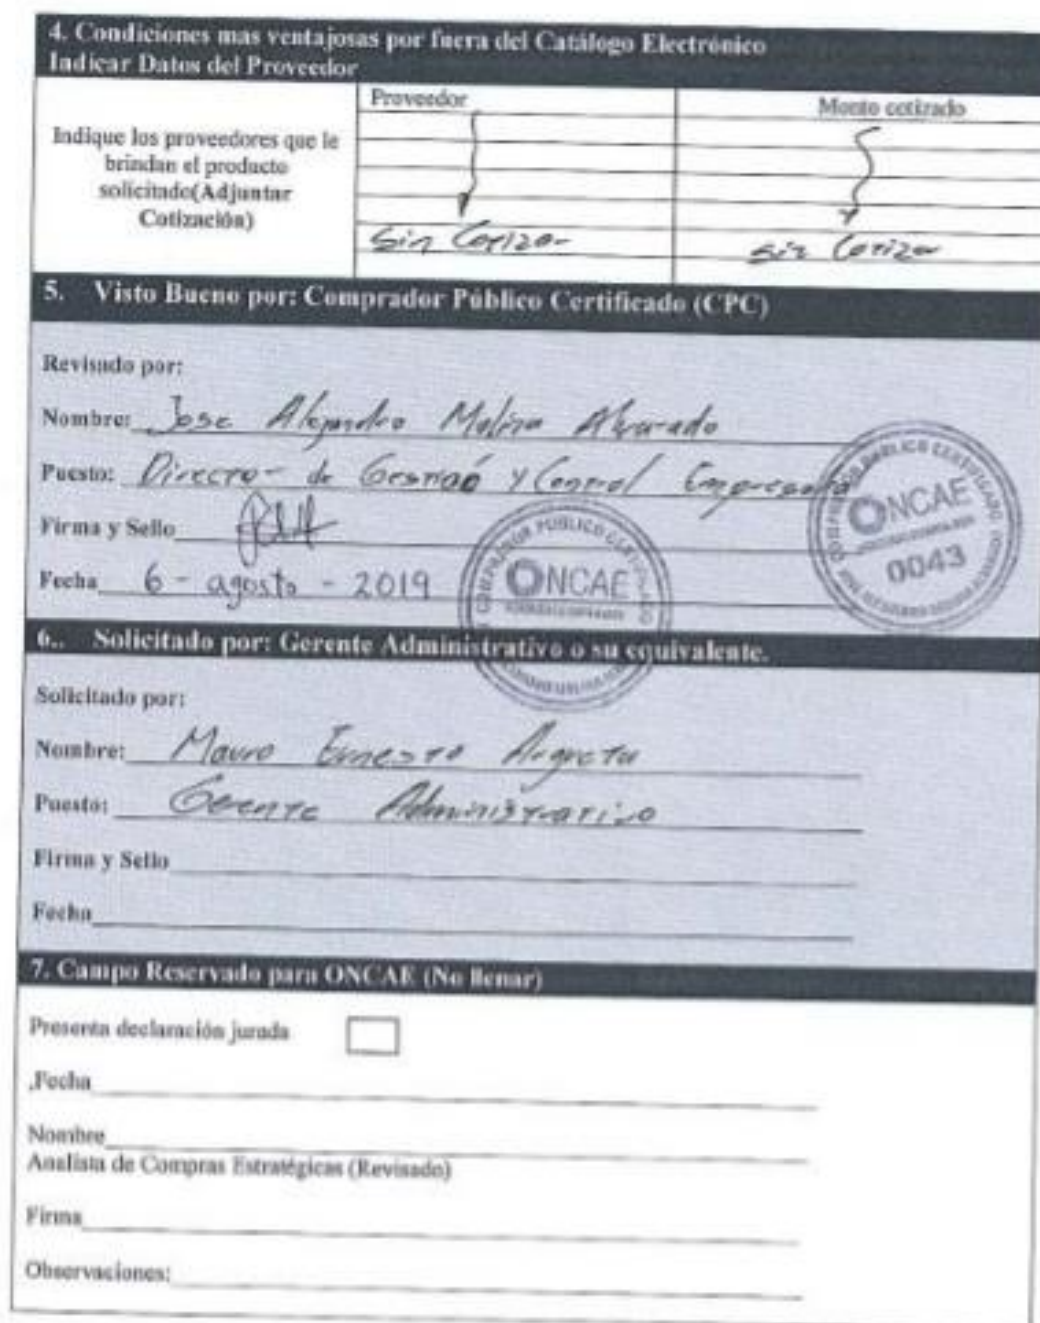 4. Condiciones mas ventajosas por fuera del Catálogo Electrónico
Indicar Datos del Proveedor
Indique los proveedores que le
brindan el producto
solicitado(Adjuntar
Cotización)
Proveedor
Monto cotizado
Sin Cotizar
sin Cotizar
5. Visto Bueno por: Comprador Público Certificado (CPC)
Revisado por:
Nombre: Jose Alejandro Molina Alvarado
Puesto: Director de Gestión y Control Empresarial
Firma y Sello
Fecha 6 - agosto - 2019
COMPRADOR PUBLICO CERTIFICADO
ONCAE
COMPRADOR PUBLICO CERTIFICADO
ONCAE
0043
6.. Solicitado por: Gerente Administrativo o su equivalente.
Solicitado por:
Nombre: Mauro Ernesto Argueta
Puesto: Gerente Administrativo
Firma y Sello
Fecha
7. Campo Reservado para ONCAE (No llenar)
Presenta declaración jurada
,Fecha
Nombre
Analista de Compras Estratégicas (Revisado)
Firma
Observaciones: